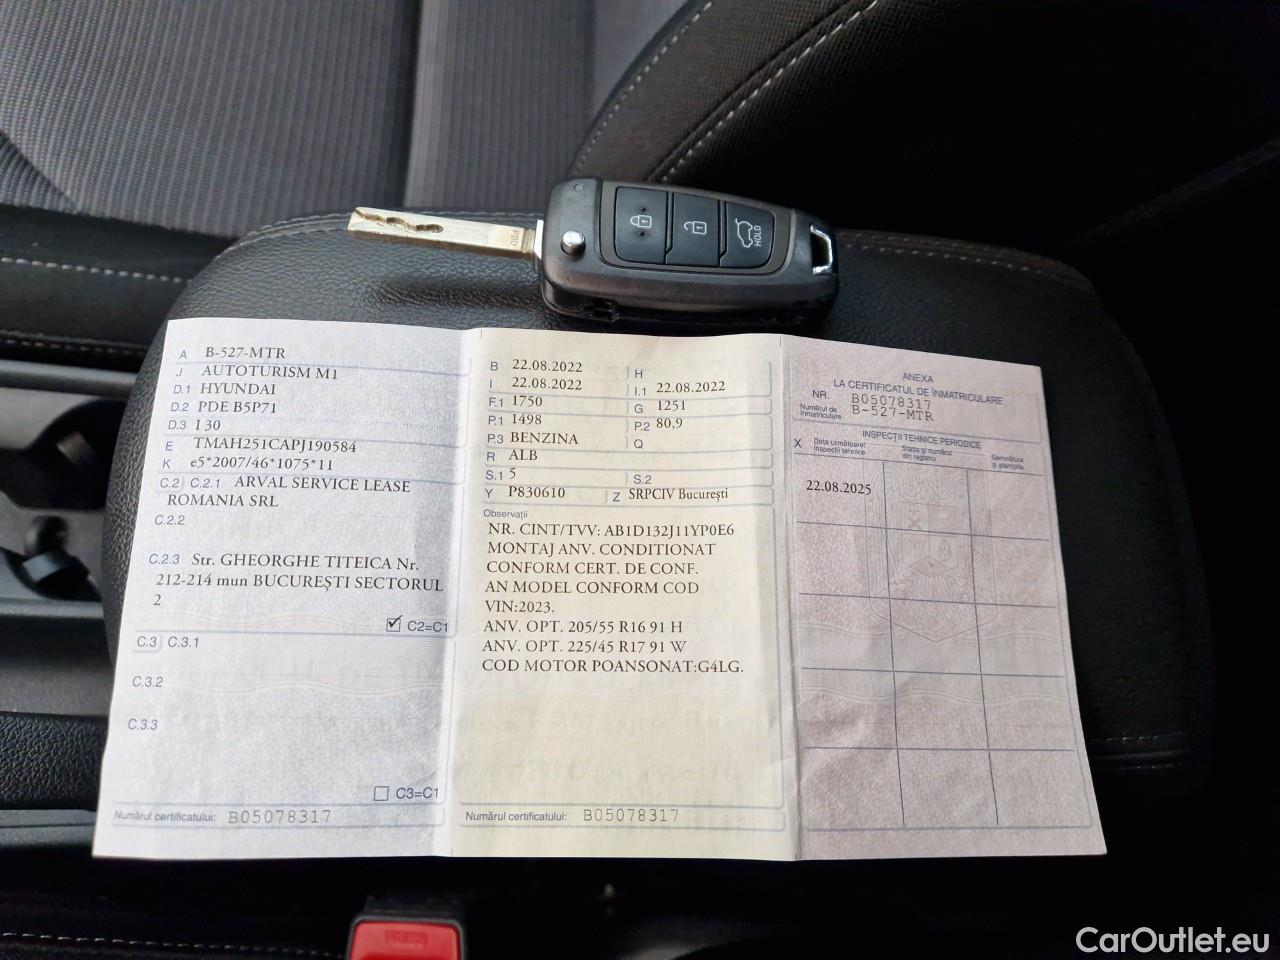 HOLD
PBD
A B-527-MTR
J AUTOTURISM M1
D.1 HYUNDAI
D.2 PDE B5P71
D.3 I 30
E TMAH251CAPJ190584
K e5*2007/46*1075*11
C.2 C.2.1 ARVAL SERVICE LEASE
ROMANIA SRL
C.2.2
C.2.3 Str. GHEORGHE TITEICA Nr.
212-214 mun BUCUREȘTI SECTORUL
2
C2=C1
C.3 C.3.1
C.3.2
C.3.3
C3=C1
Numărul certificatului: B05078317
B 22.08.2022 H
I 22.08.2022 I.1 22.08.2022
F.1 1750 G 1251
P.1 1498 P.2 80,9
P.3 BENZINA Q
R ALB
S.1 5 S.2
Y P830610 Z SRPCIV București
Observații
NR. CINT/TVV: AB1D132J11YP0E6
MONTAJ ANV. CONDITIONAT
CONFORM CERT. DE CONF.
AN MODEL CONFORM COD
VIN:2023.
ANV. OPT. 205/55 R16 91 H
ANV. OPT. 225/45 R17 91 W
COD MOTOR POANSONAT:G4LG.
Numărul certificatului: B05078317
ANEXA
LA CERTIFICATUL DE ÎNMATRICULARE
NR. B05078317
Numărul de înmatriculare B-527-MTR
INSPECȚII TEHNICE PERIODICE
X Data următoarei inspecții tehnice Stația și numărul din registru Semnătura și ștampila
22.08.2025
PRESS
CarOutlet.eu